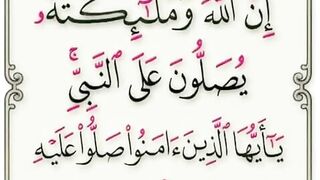 إِنَّ اللَّهَ وَمَلَٰٓئِكَتَهُۥ
يُصَلُّونَ عَلَى ٱلنَّبِيِّۚ
يَـٰٓأَيُّهَا ٱلَّذِينَ ءَامَنُوا۟ صَلُّوا۟ عَلَيْهِ